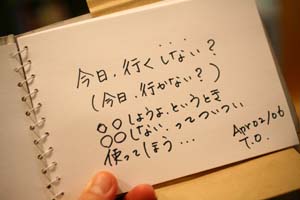 今日、行くしない?
(今日、行かない?)
○○しようよ、というとき
○○しない、ってついつい
使ってしまう…
Apr 02/06
T.O.